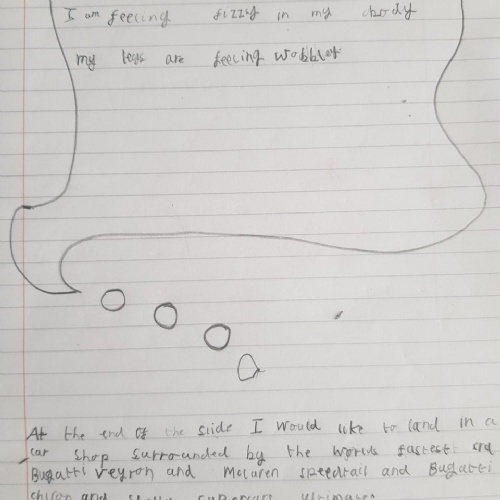 I am feeling fizzy in my body
my legs are feeling
At the end of the slide I would like to land in a
car shop surrounded by the worlds fastest
Bugatti veyron and Mclaren speedtail and Bugatti
chiron and supercars ultimate